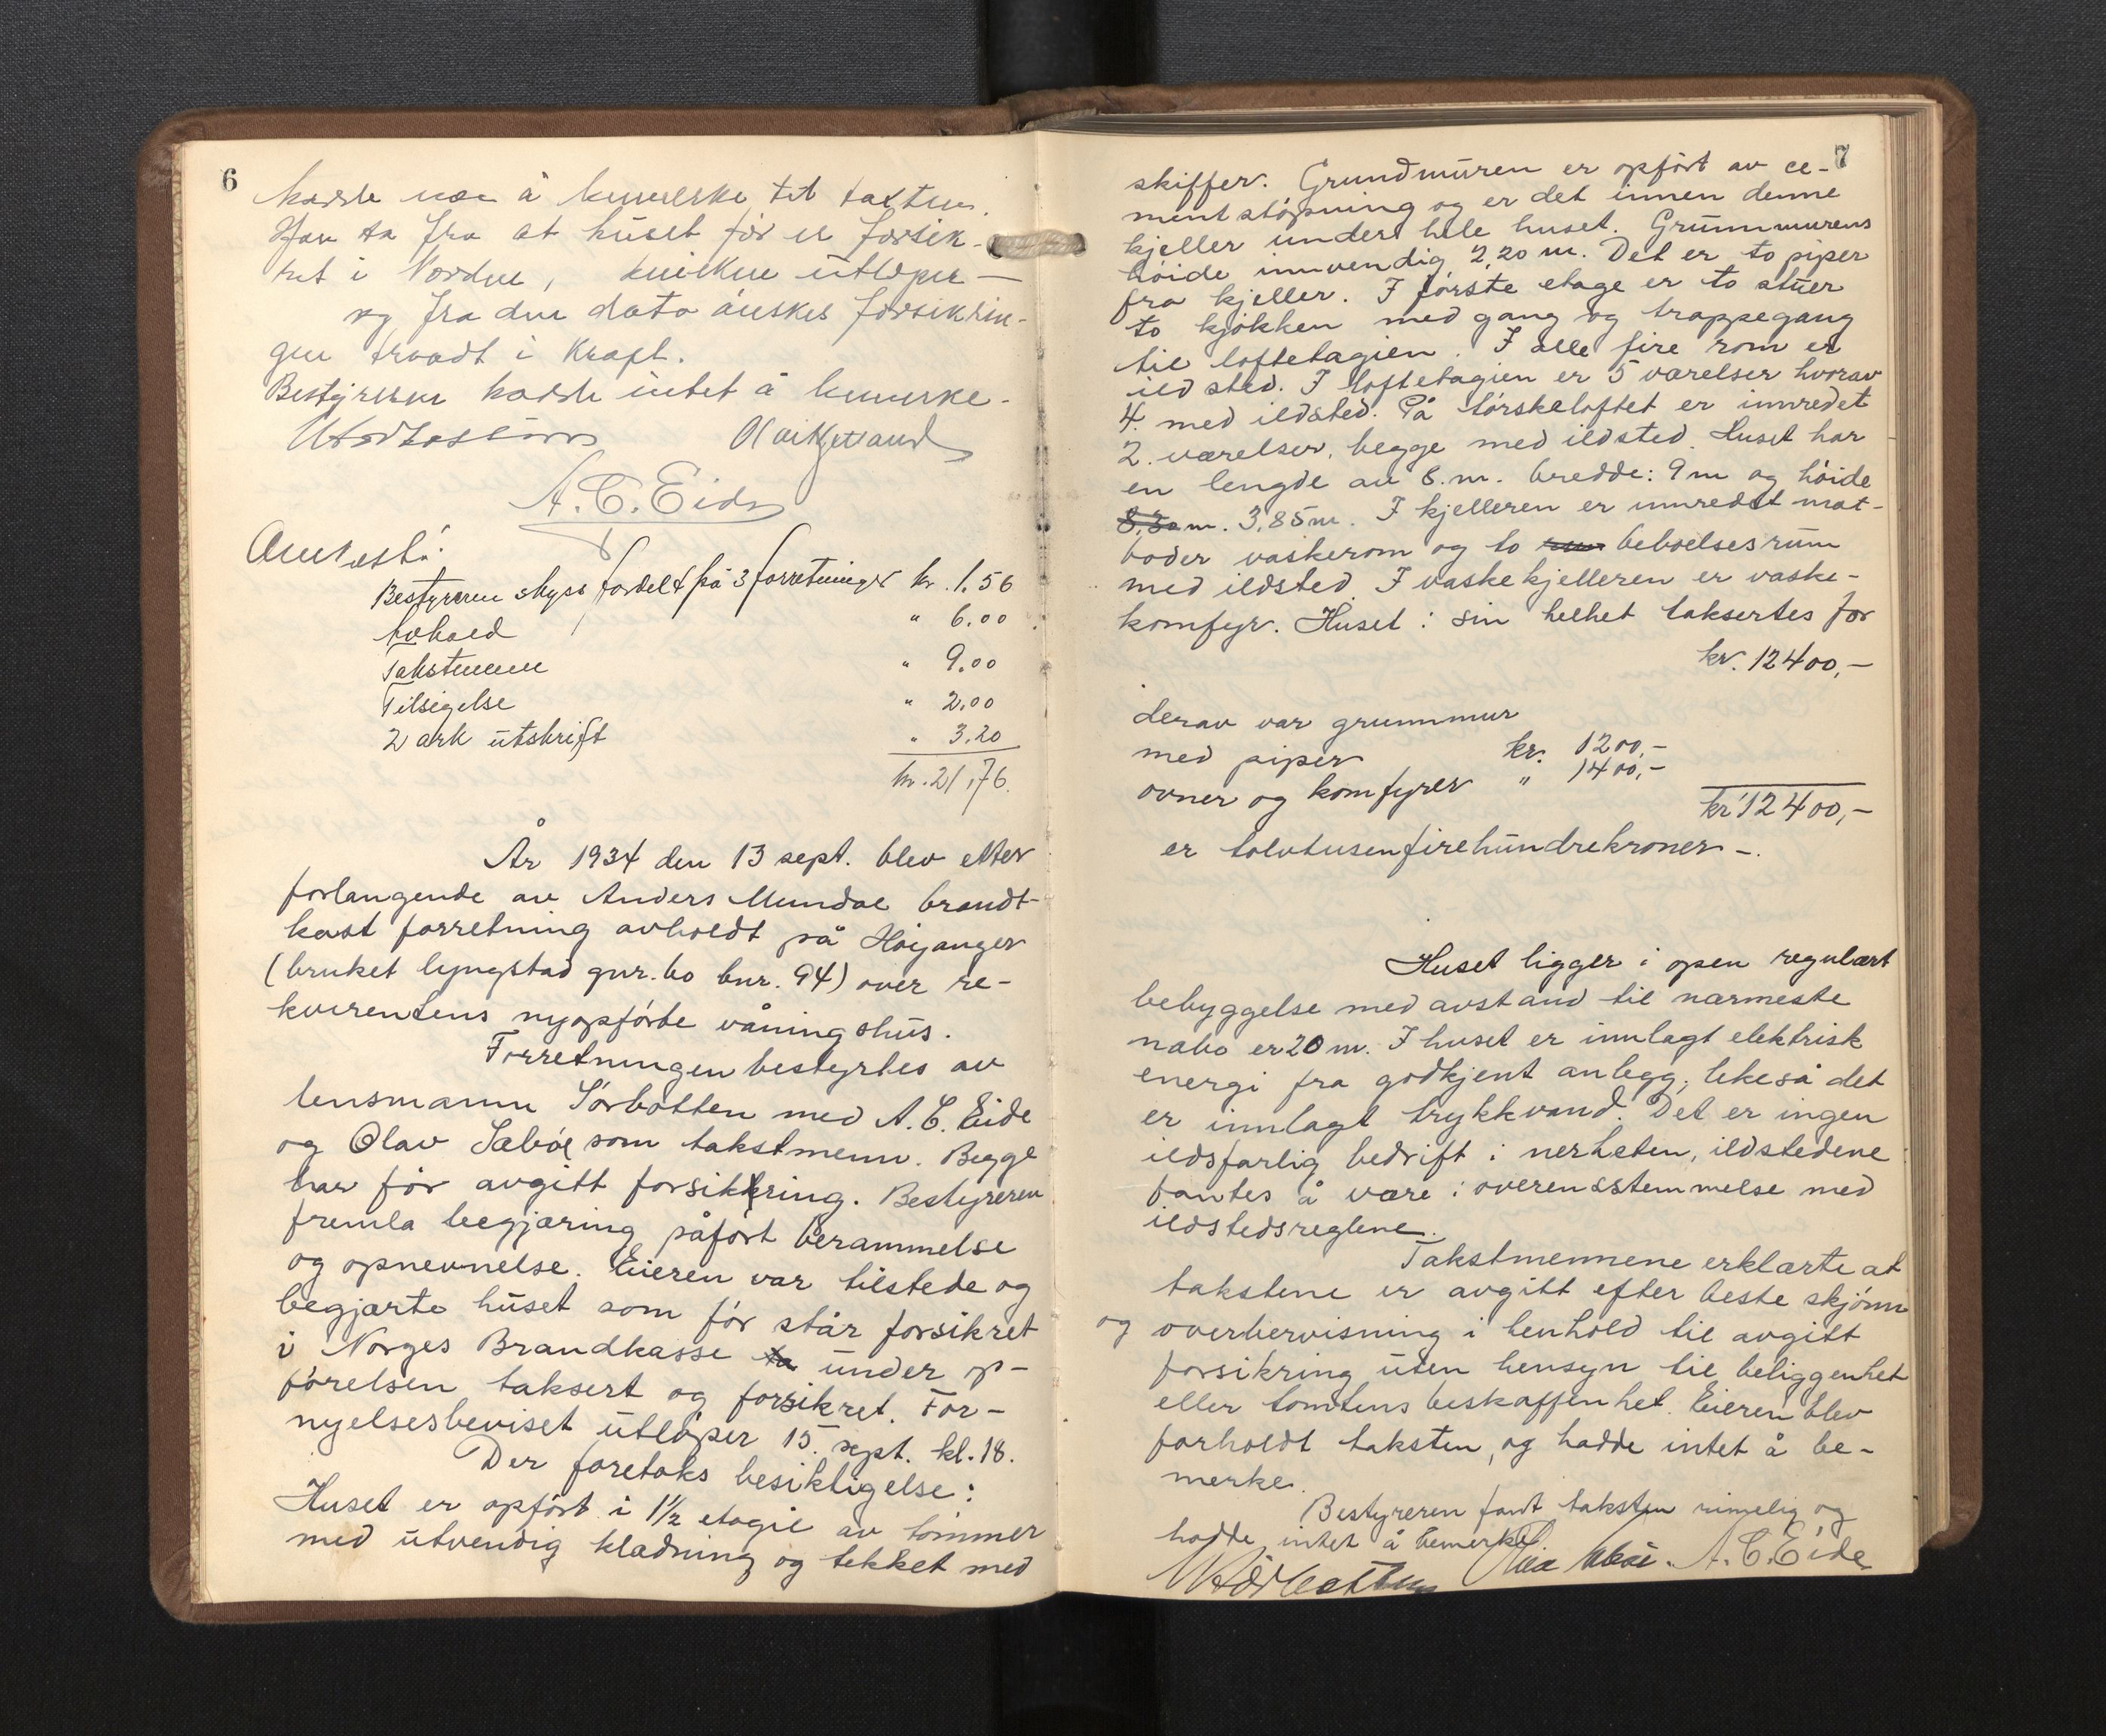 6
hadde noe å bemerke til taxten.
Han sa fra at huset før er forsik-
ret i Norden, utløper —
og fra den dato ønskes forsikrin-
gen trædt i Kraft.
Bestyreren hadde intet å bemerke.
A. C. Eide
Bestyreren skyss fordelt på 3 forretninger kr. 1.56
Avhold " 6.00
Takstmenn " 9.00
Tilsigelse " 2.00
2 ark utskrift " 3.20
kr. 21,76.
År 1934 den 13 sept. blev etter
forlangende av Anders Mundal brandt-
kast forretning avholdt på Høyanger
(bruket lyngstad gnr. 60 bnr. 94) over re-
kvirentens nyopførte våningshus.
Forretningen bestyrtes av
lensmann Sørbotten med A. C. Eide
og Olav Sæbøe som takstmenn. Begge
har før avgitt forsikkring. Bestyreren
fremla begjæring påført berammelse
og opnevnelse. Eieren var tilstede og
begjærte huset som før står forsikret
i Norges Brandkasse under op-
førelsen taksert og forsikret. For-
nyelsesbeviset utløper 15. sept. kl. 18.
Der foretoks besiktigelse:
Huset er opført i 1½ etagie av tømmer
med utvendig klædning og tekket med
7
skiffer. Grundmuren er opført av ce-
mentstøpning og er det innen denne
kjeller under hele huset. Grunnmurens
høide innvendig 2,20 m. Det er to piper
fra kjeller. I første etage er to stuer
to kjøkken med gang og trappegang
til loftetagien. I alle fire rom er
ildsted. I loftetagien er 5 værelser hvorav
4. med ildsted. På tørskeloftet er innredet
2. værelser, begge med ildsted. Huset har
en lengde av 8. m. bredde: 9 m og høide
8,30 m. 3,85 m. I kjelleren er innredet mat-
boder vaskerom og to beboelsesrum
med ildsted. I vaskekjelleren er vaske-
komfyr. Huset i sin helhet taksertes for
kr. 12400,—
derav var grunnmur
med piper kr. 1200,—
ovner og komfyrer " 1400,—
kr 12400,—
er tolvtusenfirehundrekroner —.
Huset ligger i open regulært
bebyggelse med avstand til nærmeste
nabo er 20 m. I huset er innlagt elektrisk
energi fra godkjent anlegg, likeså det
er innlagt trykkvand. Det er ingen
ildsfarlig bedrift i nerheten, ildstedene
fantes å være i overensstemmelse med
ildstedsreglene.
Takstmennene erklærte at
takstene er avgitt efter beste skjønn
og overbervisning i henhold til avgitt
forsikring uten hensyn til beliggenhet
eller tomtens beskaffenhet. Eieren blev
forholdt taksten, og hadde intet å be-
merke.
Bestyreren fant taksten rimelig og
hadde intet å bemerke.
A. C. Eide